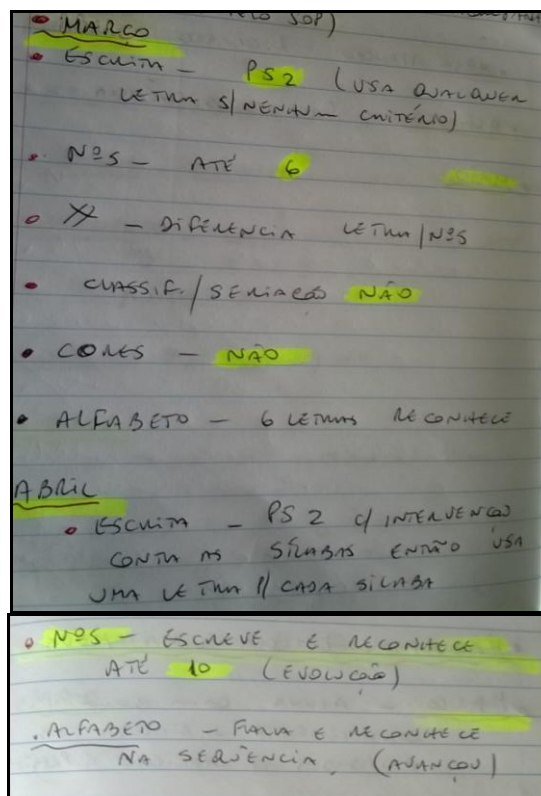 SOP)
• MARÇO
• ESCRITA – PS2 (USA QUALQUER
LETRA S/NENHUM CRITÉRIO)
• NºS – ATÉ 6
• – DIFERENCIA LETRA/NºS
• CLASSIF./SERIAÇÃO NÃO
• CORES – NÃO
• ALFABETO – 6 LETRAS RECONHECE
ABRIL
• ESCRITA – PS 2 C/ INTERVENÇÃO
CONTA AS SÍLABAS ENTÃO USA
UMA LETRA P/ CADA SÍLABA
• NºS – ESCREVE E RECONHECE
ATÉ 10 (EVOLUÇÃO)
. ALFABETO – FALA E RECONHECE
NA SEQÜÊNCIA. (AVANÇOU)